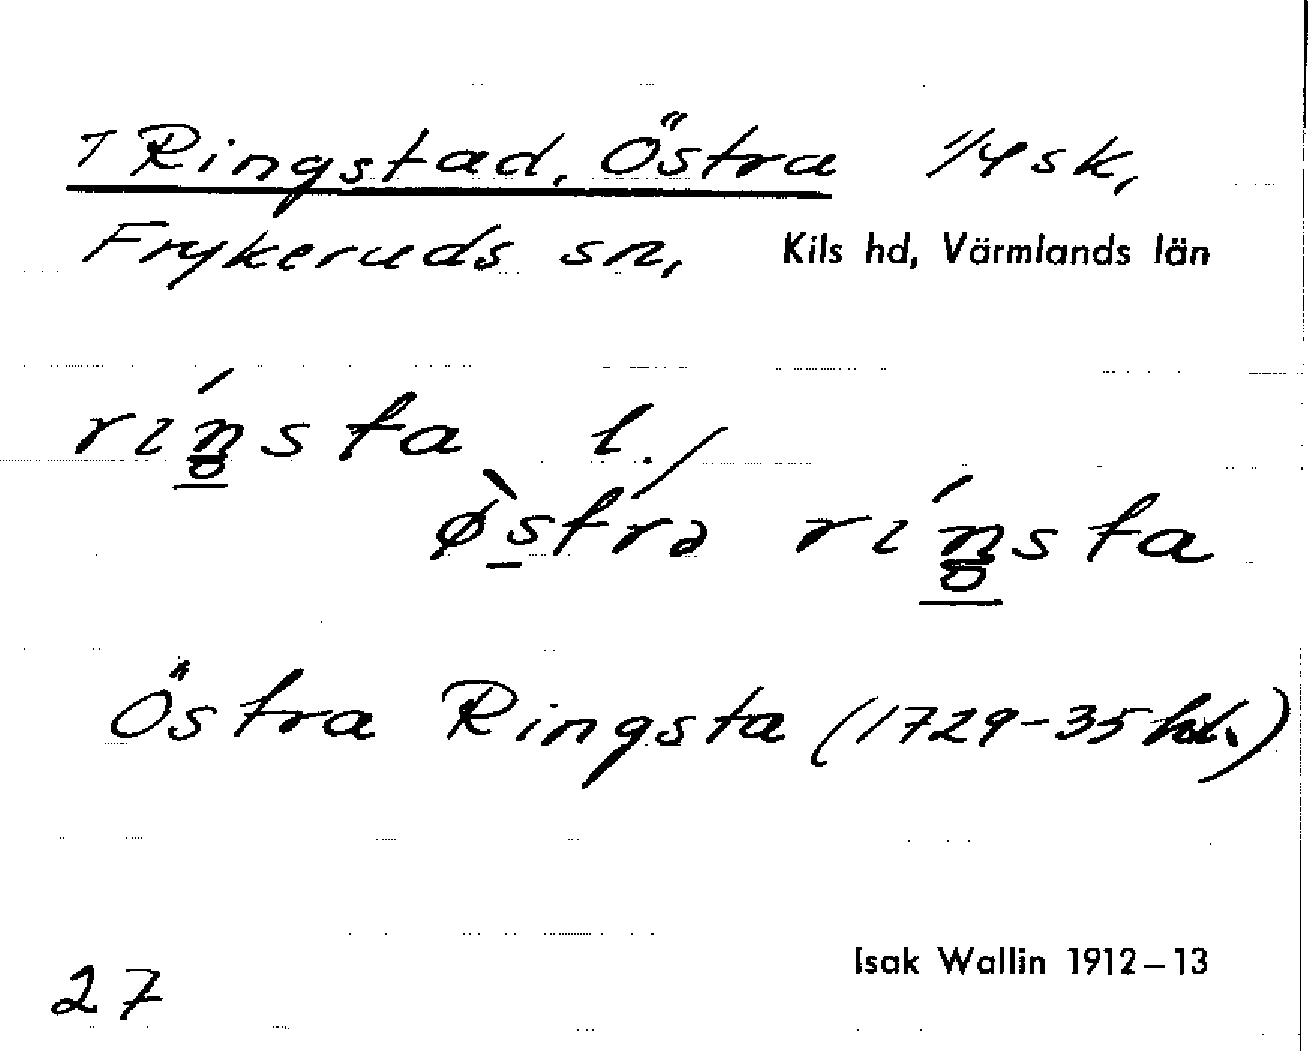 7 Ringstad, Östra 1/4 sk,
Frykeruds sn, Kils hd, Värmlands län
ríŋ̥sta l./
øs̀tra ríŋ̥sta
Östra Ringsta (1729-35 hdl.)
Isak Wallin 1912–13
27